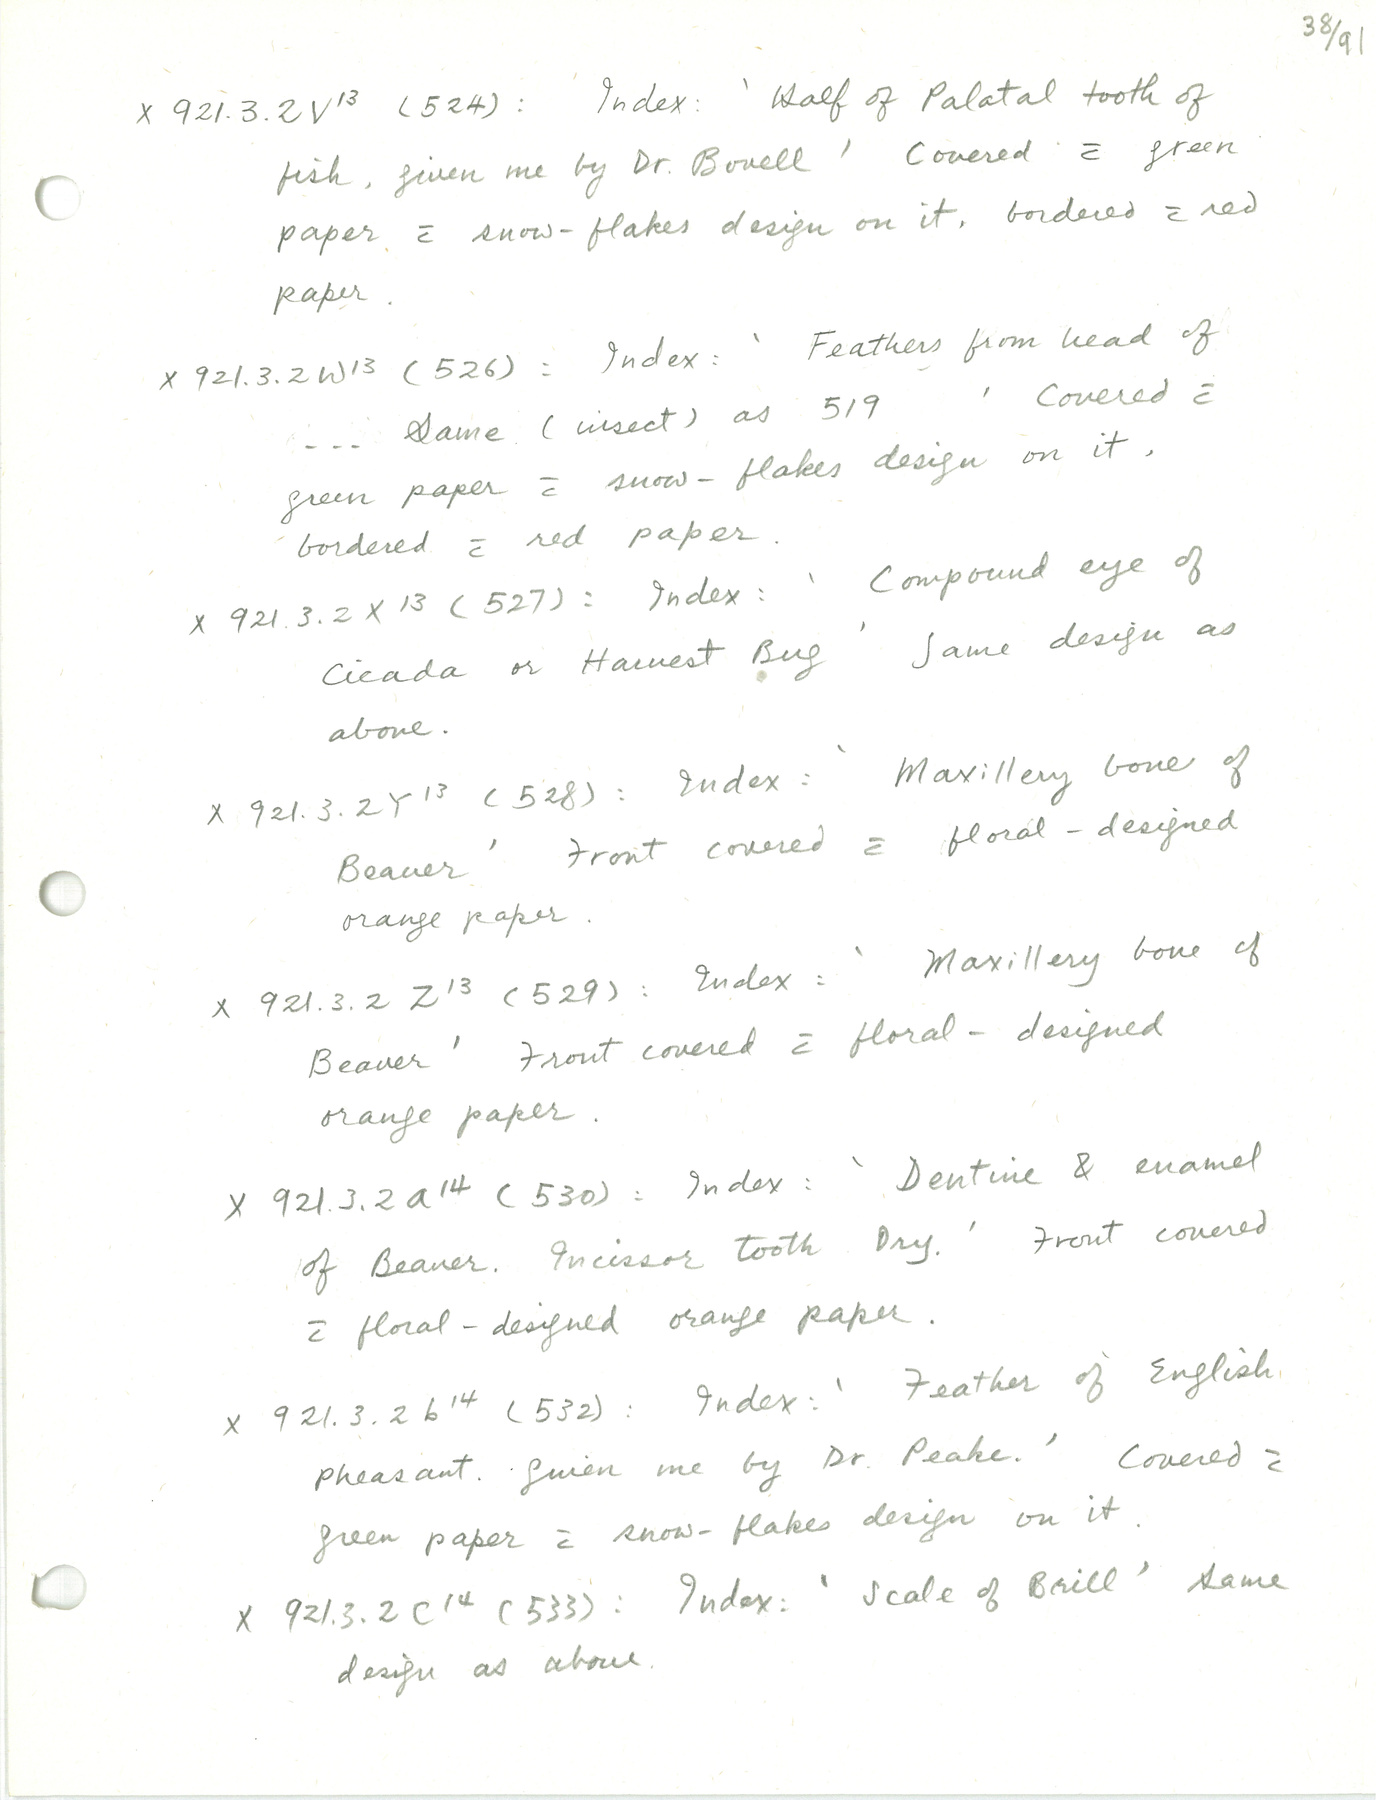 38/91
X 921.3.2V¹³ (524): Index: ‘Half of Palatal tooth of
fish, given me by Dr. Bovell’ Covered c̄ green
paper c̄ snow-flakes design on it, bordered c̄ red
paper.
X 921.3.2W¹³ (526): Index: ‘Feathers from head of
--- Same (insect) as 519 ’ Covered c̄
green paper c̄ snow-flakes design on it,
bordered c̄ red paper.
X 921.3.2X¹³ (527): Index: ‘Compound eye of
Cicada or Harvest Bug’ Same design as
above.
X 921.3.2Y¹³ (528): Index: ‘Maxillery bone of
Beaver’ Front covered c̄ floral-designed
orange paper.
X 921.3.2 Z¹³ (529): Index: ‘Maxillery bone of
Beaver’ Front covered c̄ floral-designed
orange paper.
X 921.3.2a¹⁴ (530): Index: ‘Dentine & enamel
of Beaver. Incissor tooth Dry.’ Front covered
c̄ floral-designed orange paper.
X 921.3.2b¹⁴ (532): Index: ‘Feather of English
pheasant. Given me by Dr. Peake.’ Covered c̄
green paper c̄ snow-flakes design on it.
X 921.3.2C¹⁴ (533): Index: ‘Scale of Brill’ Same
design as above.